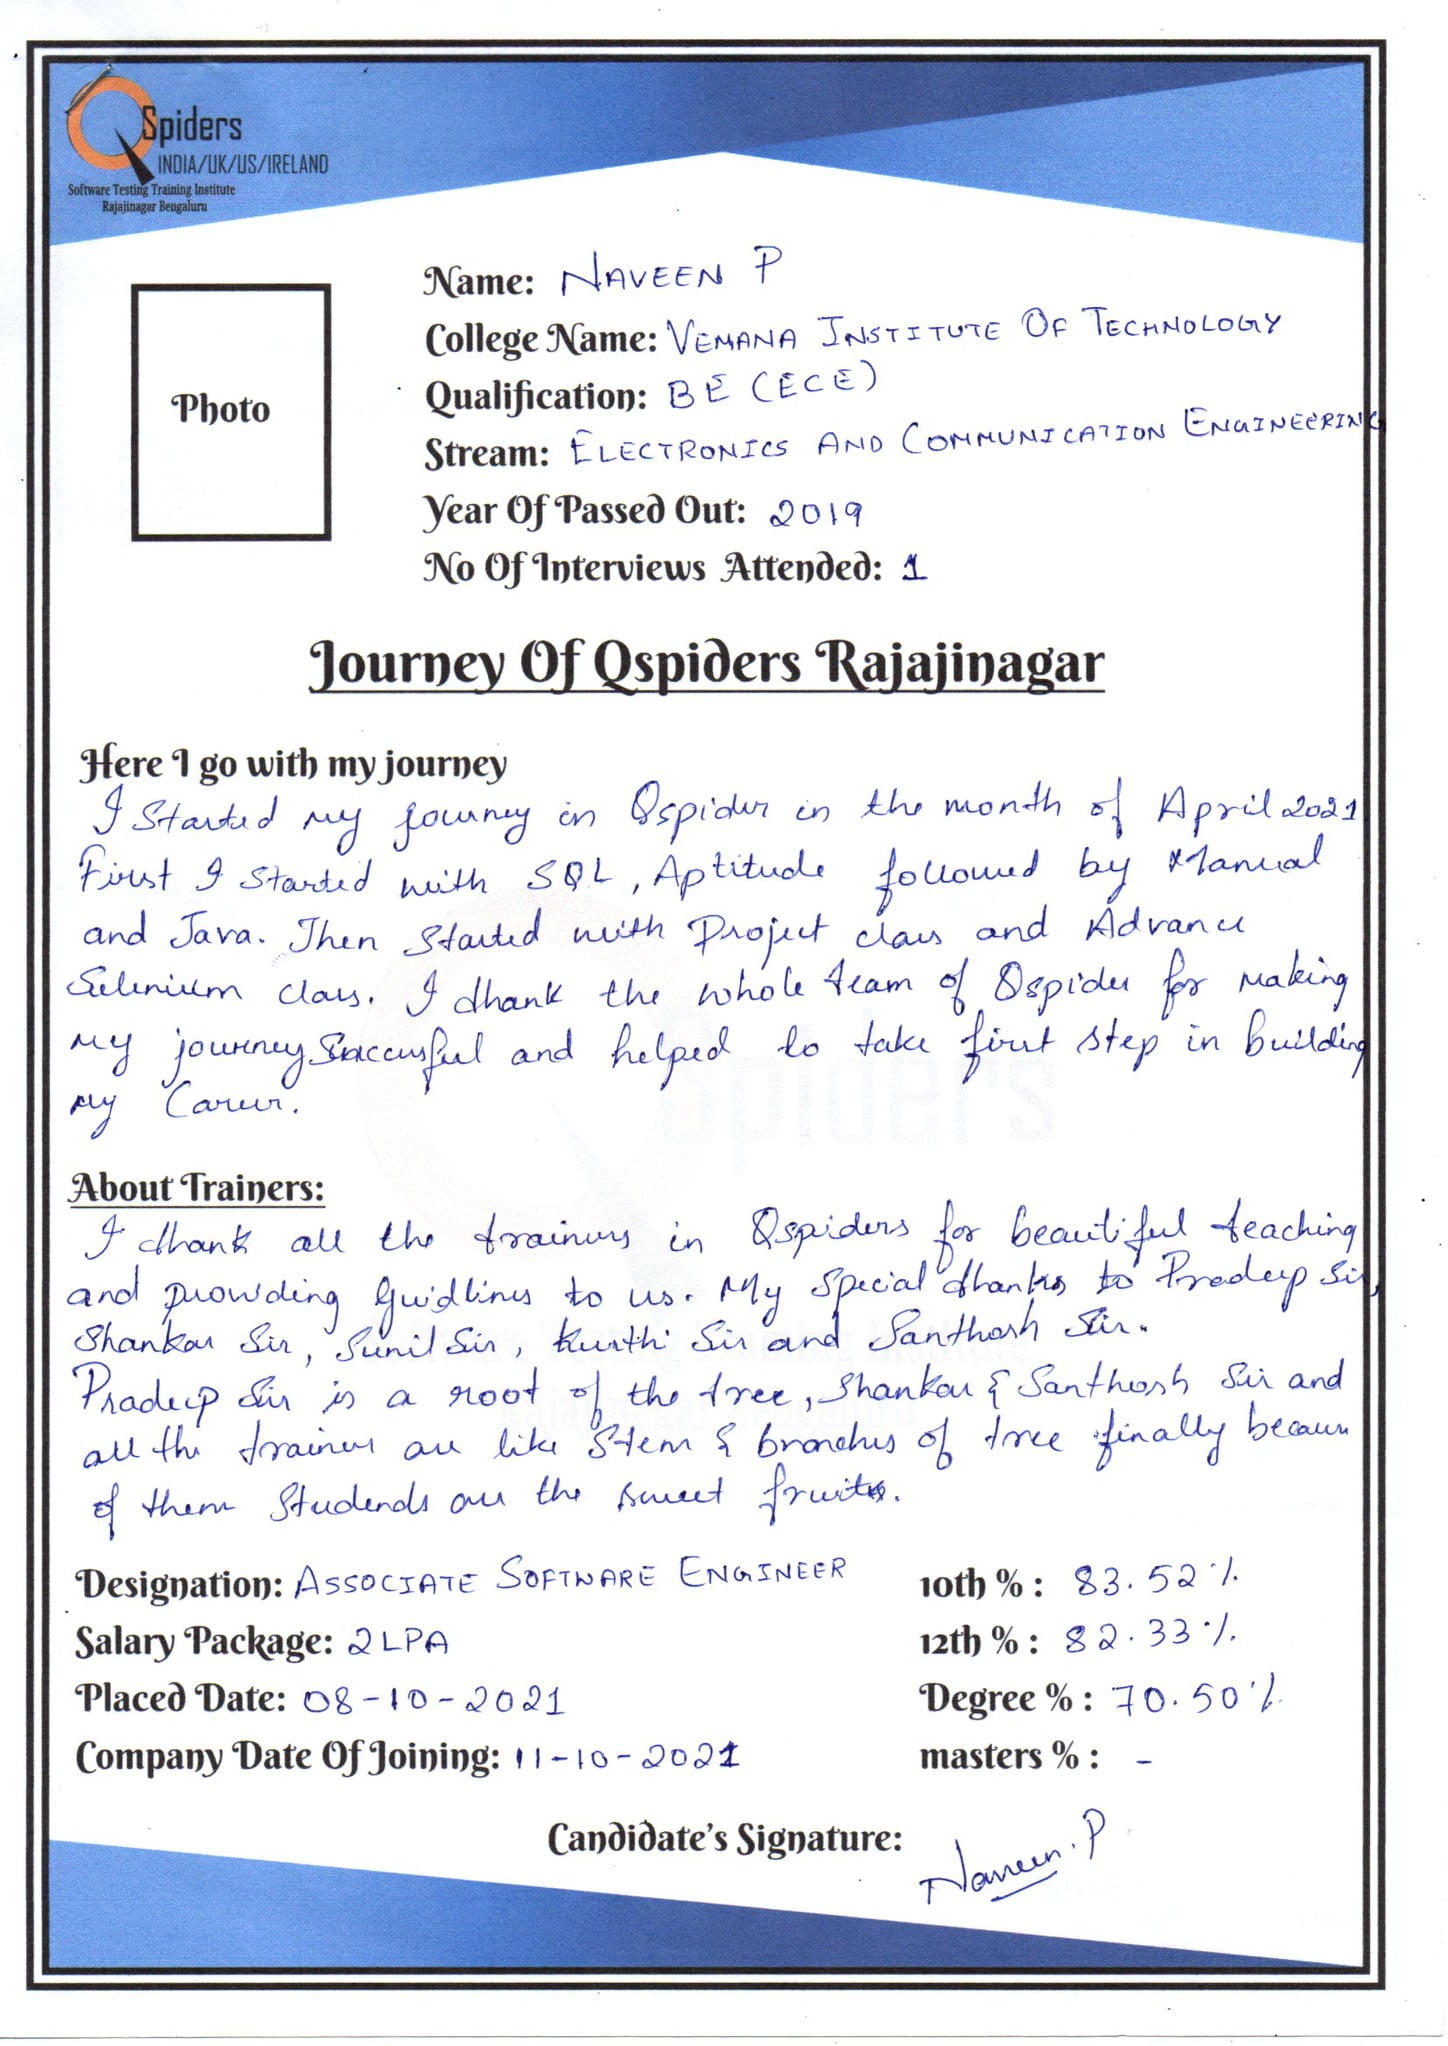 QSpiders
INDIA/UK/US/IRELAND
Software Testing Training Institute
Rajajinagar Bengaluru
Photo
Name: NAVEEN P
College Name: VEMANA INSTITUTE OF TECHNOLOGY
Qualification: BE (ECE)
Stream: ELECTRONICS AND COMMUNICATION ENGINEERING
Year Of Passed Out: 2019
No Of Interviews Attended: 1
Journey Of Qspiders Rajajinagar
Here I go with my journey
I Started my journey in Qspider in the month of April 2021
First I Started with SQL, Aptitude followed by Manual
and Java. Then Started with Project class and Advance
Selenium class. I thank the whole team of Qspider for making
my journey Successful and helped to take first step in building
my Career.
About Trainers:
I thank all the trainers in Qspiders for beautiful teaching
and providing Guidlines to us. My Special thanks to Pradeep Sir,
Shankar Sir, Sunil Sir, Kirthi Sir and Santhosh Sir.
Pradeep Sir is a root of the tree, Shankar & Santhosh Sir and
all the trainers are like Stem & branches of tree finally because
of them Studends are the sweet fruits.
Designation: ASSOCIATE SOFTWARE ENGINEER
10th % : 83.52%
Salary Package: 2LPA
12th % : 82.33%
Placed Date: 08-10-2021
Degree % : 70.50%
Company Date Of Joining: 11-10-2021
masters % : -
Candidate's Signature: Naveen.P
QSpiders
Software Testing Training Institute
Rajajinagar Bengaluru